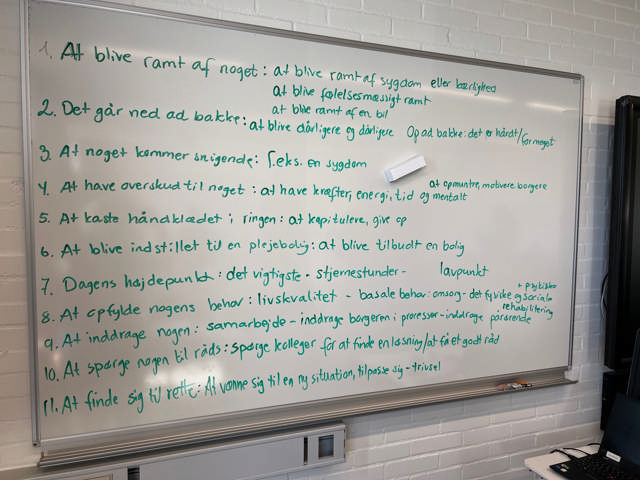 1. At blive ramt af noget: at blive ramt af sygdom eller kærlighed
at blive følelsesmæssigt ramt
at blive ramt af en bil
2. Det går ned ad bakke: at blive dårligere og dårligere Op ad bakke: det er hårdt/for meget
3. At noget kommer snigende: f.eks. en sygdom
4. At have overskud til noget: at have kræfter, energi, tid og mentalt
at opmuntre, motivere borgere
5. At kaste håndklædet i ringen: at kapitulere, give op
6. At blive indstillet til en plejebolig: at blive tilbudt en bolig
7. Dagens højdepunkt: det vigtigste - stjernestunder - lavpunkt
8. At opfylde nogens behov: livskvalitet - basale behov: omsorg - det fysiske og sociale
+ psykiske
rehabilitering
9. At inddrage nogen: samarbejde - inddrage borgeren i processer - inddrage pårørende
10. At spørge nogen til råds: spørge kolleger for at finde en løsning/at få et godt råd
11. At finde sig til rette: At vænne sig til en ny situation, tilpasse sig - trivsel